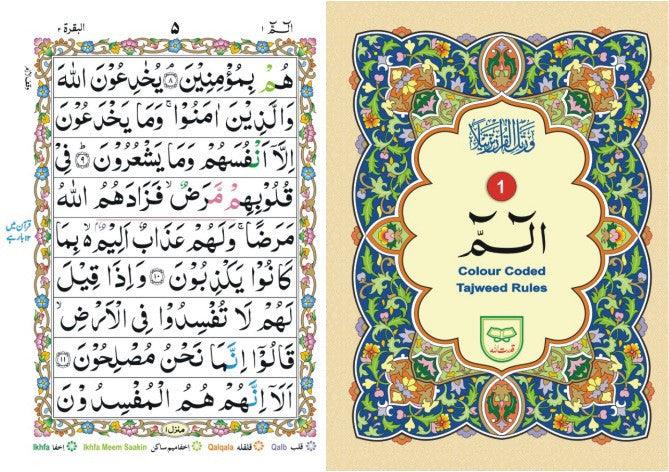 الٓمّٓ ١ ٥ البقرة ٢
هُمْ بِمُؤْمِنِيْنَ ۘ ٨ يُخٰدِعُوْنَ اللّٰهَ
وَالَّذِيْنَ اٰمَنُوْا ۚ وَمَا يَخْدَعُوْنَ
اِلَّاۤ اَنْفُسَهُمْ وَمَا يَشْعُرُوْنَ ؕ ٩ فِىْ
قُلُوْبِهِمْ مَّرَضٌ ۙ فَزَادَهُمُ اللّٰهُ
مَرَضًا ۚ وَلَهُمْ عَذَابٌ اَلِيْمٌ ۢ ۙ بِمَا
كَانُوْا يَكْذِبُوْنَ ١٠ وَاِذَا قِيْلَ
لَهُمْ لَا تُفْسِدُوْا فِى الْاَرْضِ ۙ
قَالُوْۤا اِنَّمَا نَحْنُ مُصْلِحُوْنَ ١١
اَلَاۤ اِنَّهُمْ هُمُ الْمُفْسِدُوْنَ
منزل ١
قرآن میں
Ikhfa اخفا Ikhfa Meem Saakin اخفا میم ساکن Qalqala قلقله Qalb قلب
وَرَتِّلِ الْقُرْاٰنَ تَرْتِيْلًا
1
الٓمّٓ
Colour Coded
Tajweed Rules
قدرت الله